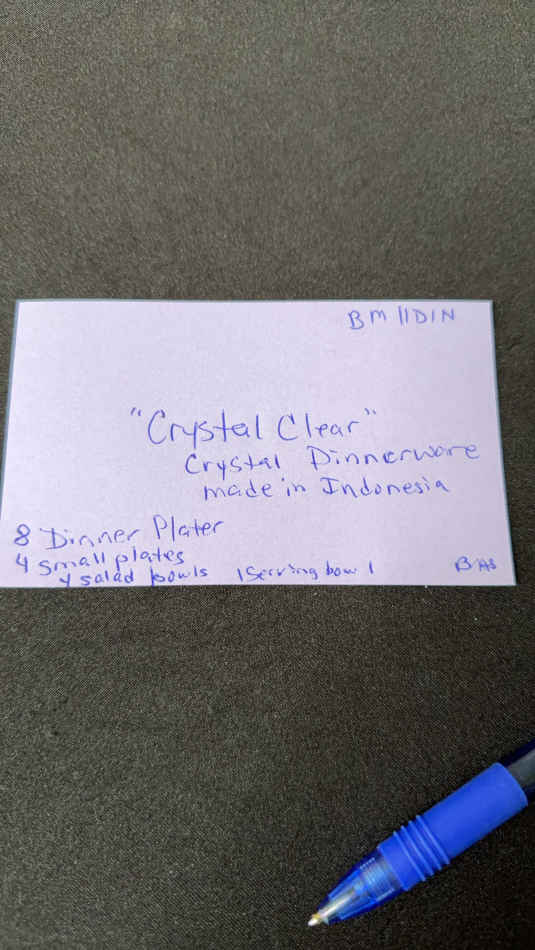 BM11DIN
"Crystal Clear"
Crystal Dinnerware
made in Indonesia
8 Dinner Plater
4 small plates
4 salad bowls 1 Serving bowl